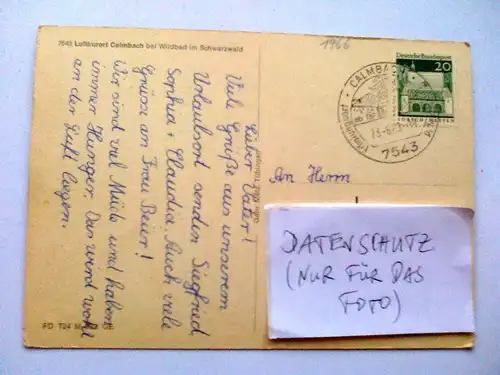 7543 Luftkurort Calmbach bei Wildbad im Schwarzwald
1966
Deutsche Bundespost
20
CALMBACH
7543
Lieber Vater!
Viele Grüße aus unserem
Urlaubsort senden Siegfried,
Sophia + Claudia. Auch viele
Grüsse an Frau Beier!
Wir sind viel Müde und haben
immer Hunger. Das wird wohl
an der Luft liegen.
An Herrn
DATENSCHUTZ
(NUR FÜR DAS
FOTO)